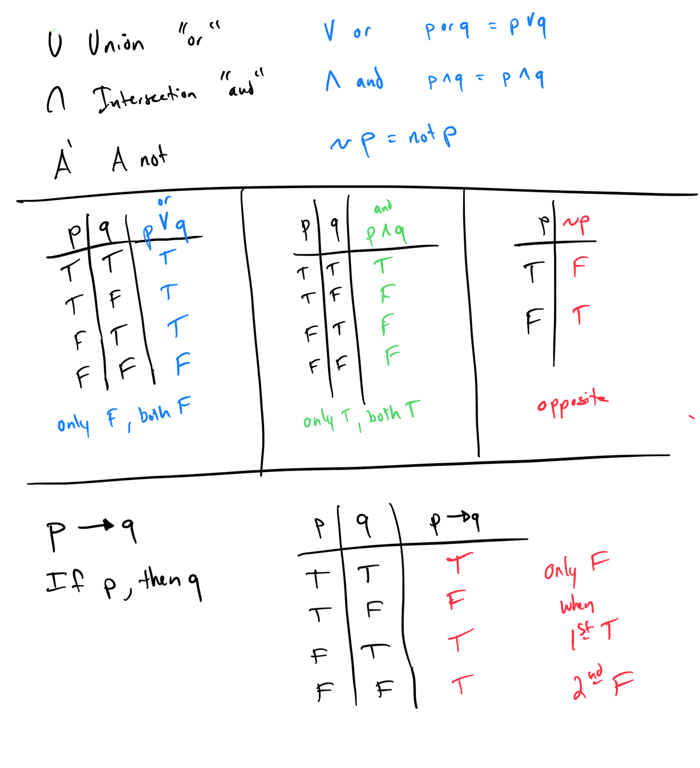 ∪ Union "or"
∩ Intersection "and"
A' A not
V or p or q = p V q
Λ and p ∧ q = p ∧ q
~p = not p
or
p q p V q
T T T
T F T
F T T
F F F
only F, both F
and
p q p ∧ q
T T T
T F F
F T F
F F F
only T, both T
p ~p
T F
F T
opposite
P → q
If p, then q
p q p → q
T T T
T F F
F T T
F F T
only F
when
1st T
2nd F